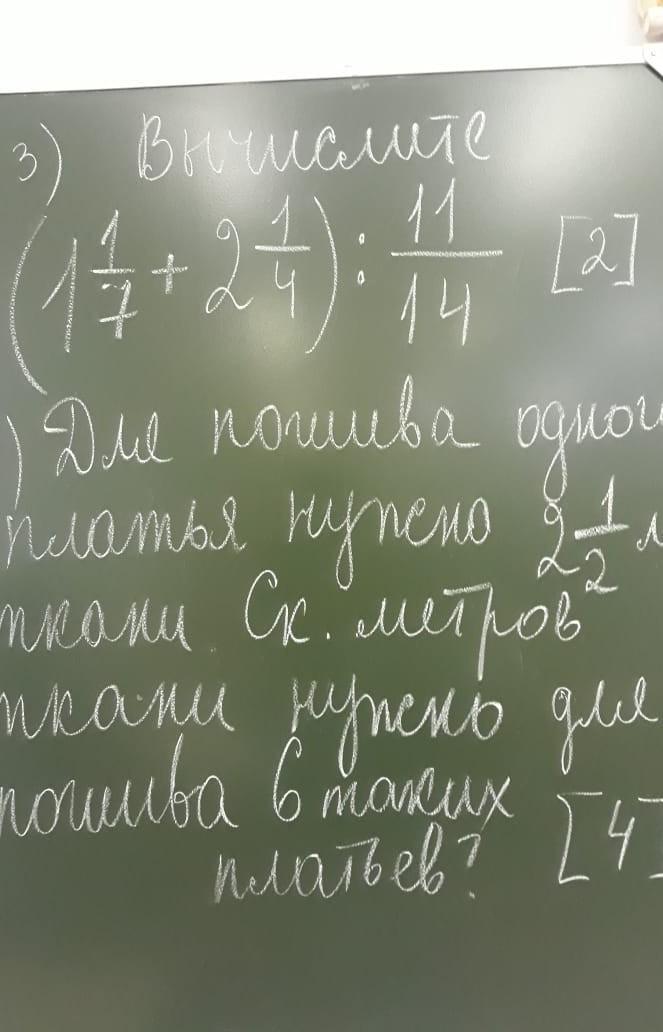 3) Вычислите
(1 1/7 + 2 1/4) : 11/14 [2]
) Для пошива одног
платья нужно 2 1/2 м
ткани. Ск. метров
ткани нужно для
пошива 6 таких
платьев? [4]